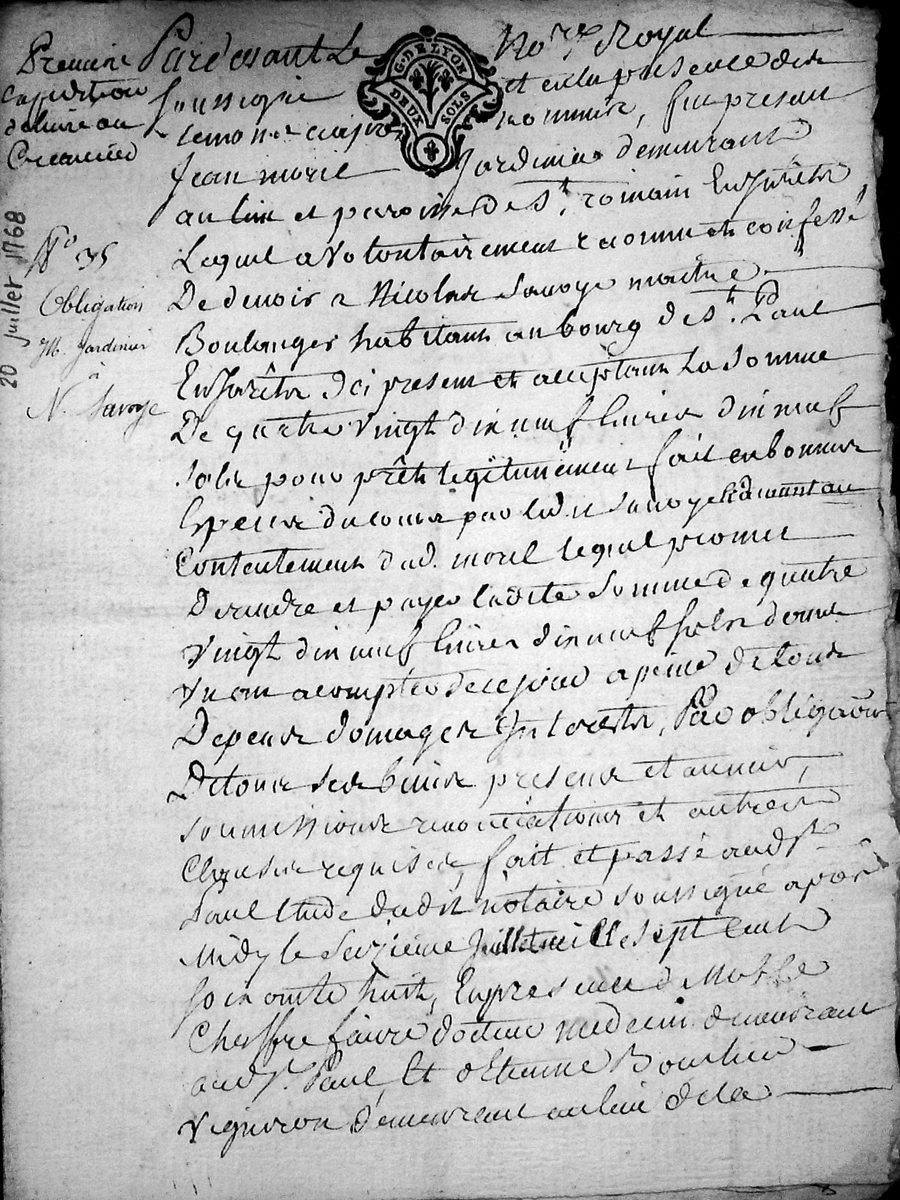 Premiere
Expedition
delivree au
Creancier
20 juillet 1768
N° 35
Obligation
M. Jardinier
à
N. Savoye
G. DE LYON
DEUX SOLS
Pardevant Le Nore Royal
soussigné et en la presence des
temoins cy apres nommés, fut present
Jean morel Jardinier demeurant
au lieu et paroisse de St. romain En Jarêts
Lequel a volontairement reconnu et confessé
De devoir a Nicolas Savoye maitre
Boulanger habitant au bourg de St. Paul
En Jarêts ici present et acceptant La somme
De quatre vingt dix neuf livres dix neuf
sols pour prêt legitimement fait en bonnes
Especes du cours par led. Savoye
Contentement dud. morel lequel promet
De rendre et payer ladite somme de quatre
vingt dix neuf livres dix neuf sols dans
un an a compter de ce jour a peine de tous
Depens domages Interests, Par obligaon
De tous ses biens presens et avenir,
soumissions renonciations et autres
Clauses requises, fait et passé aud. St.
Paul Etude dudit notaire soussigné apres
Midy le seizieme Juillet mille sept cent
soixante huit, En presence de
faivre docteur medecin demeurant
aud. St. Paul Et d'Etienne
vigneron demeurant au lieu de la